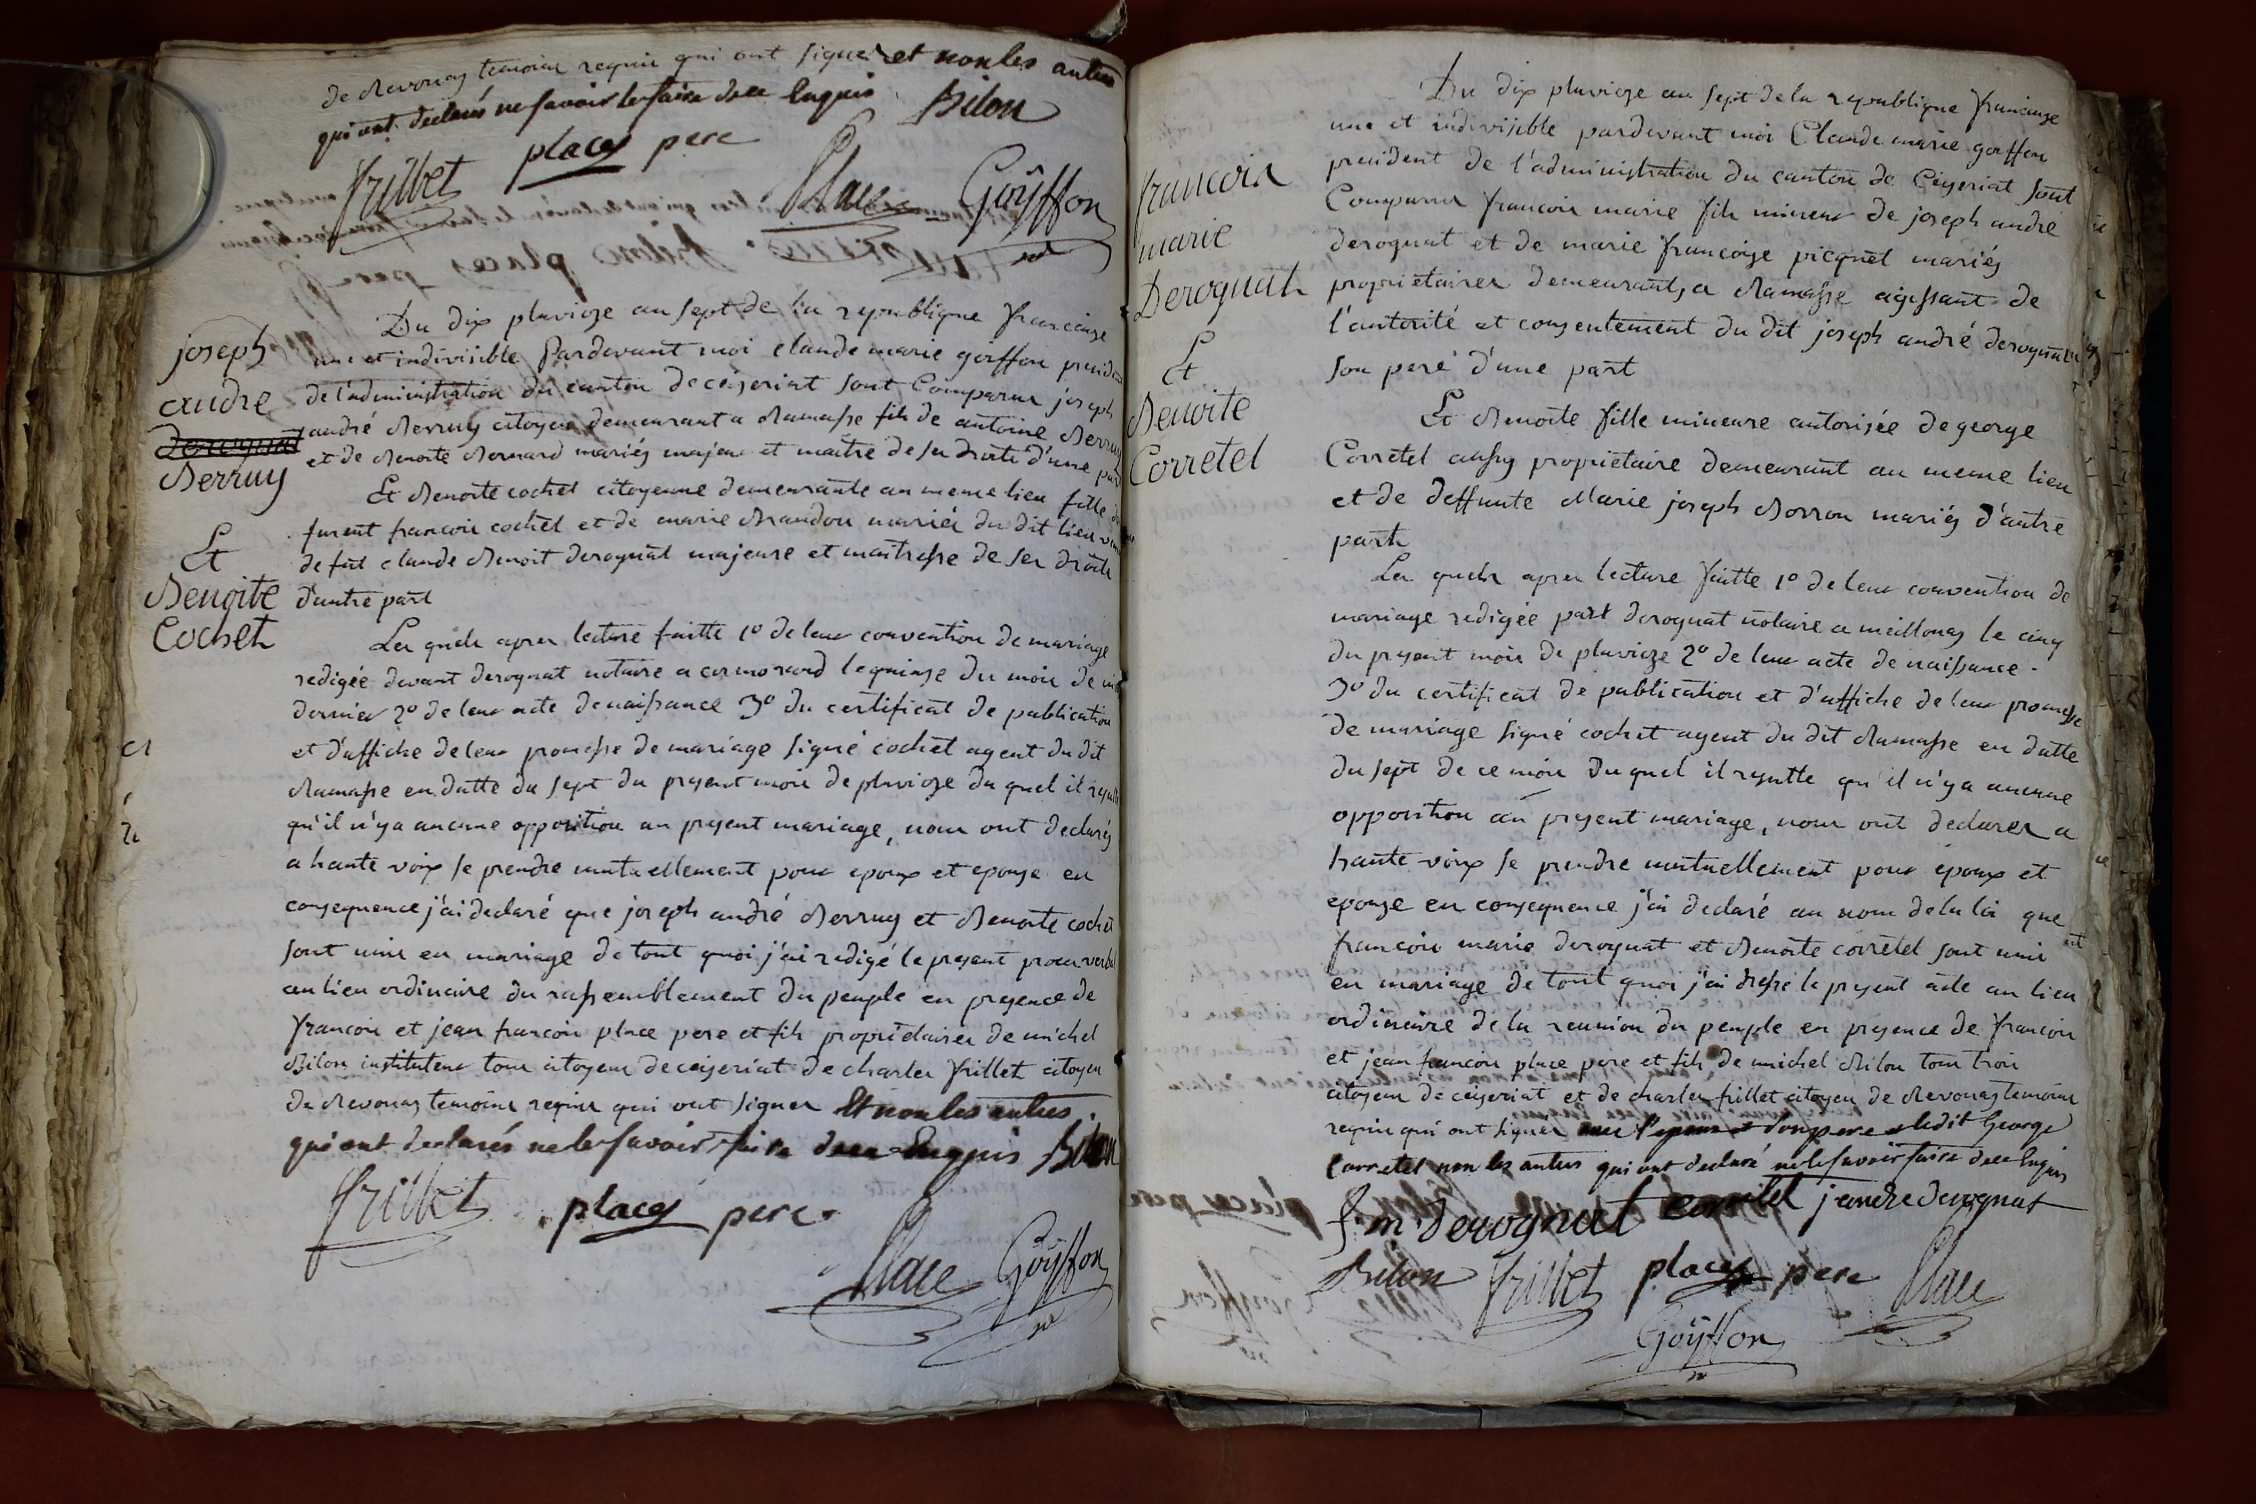 de Revonas temoins requis qui ont signer et non les autres
qui ont declarés ne savoir le faire de ce Enquis Bilon
frillet places pere
Place Goÿffon
joseph
andre
Derognat
Berruy
Et
Benoite
Cochet
Du dix pluvioze an sept de la republique francaise
une et indivisible Pardevant moi claude marie goiffon presiden
de l'administration du canton de ceiseriat sont Comparus joseph
andré Berruy citoyen demeurant a Ramasse fils de antoine Berruy
et de Benoite Bernard mariés majeur et maitre de ses droits d'une part
Et Benoite cochet citoyenne demeurante au meme lieu fille de
furent francois cochet et de marie Brandon mariés du dit lieu
de fut claude Benoit derognat majeure et maitresse de ses droits
d'autre part
Les quels apres lecture faitte 1o de leur convention de mariage
redigée devant derognat notaire a cormorand le quinze du mois de
dernier 2o de leur acte de naissance 3o du certificat de publication
et d'affiche de leur promesse de mariage signé cochet agent du dit
Ramasse en datte du sept du present mois de pluvioze du quel il
qu'il n'y a aucune opposition au present mariage, nous ont declarés
a haute voix se prendre mutuellement pour epoux et epouse en
consequence j'ai declaré que joseph andré Berruy et Benoite cochet
sont unis en mariage de tout quoi j'ai redigé le present proces verbal
au lieu ordinaire du rassemblement du peuple en presence de
francois et jean francois place pere et fils proprietaires de michel
Bilon instituteur tous citoyens de ceiseriat de charles frillet citoyen
de Revonas temoins requis qui ont signer Et non les autres
qui ont declarés ne le savoir faire de ce Enquis Bilon
frillet places pere
Place Goÿffon
francois
marie
Derognat
Et
Benoite
Corretel
Du dix pluvioze an sept de la republique francaise
une et indivisible pardevant moi Claude marie goiffon
president de l'administration du canton de Ceiseriat sont
Comparus francois marie fils mineur de joseph andré
derognat et de marie francoise picquet mariés
proprietaires demeurants a Ramasse agissant de
l'autorité et consentement du dit joseph andré derognat
son pere d'une part
Et Benoite fille mineure autorisée de george
Corretel aussy proprietaire demeurant au meme lieu
et de deffunte Marie joseph Borron mariés d'autre
part
Les quels apres lecture faitte 1o de leur convention de
mariage redigée part derognat notaire a meillonas le cinq
du present mois de pluvioze 2o de leur acte de naissance
3o du certificat de publication et d'affiche de leur promesse
de mariage signé cochet agent du dit Ramasse en datte
du sept de ce mois duquel il resulte qu'il n'y a aucune
opposition au present mariage, nous ont declarer a
haute voix se prendre mutuellement pour epoux et
epouse en consequence j'ai declaré au nom de la loi que
francois marie derognat et Benoite corretel sont unis
en mariage de tout quoi j'ai dressé le present acte au lieu
ordinaire de la reunion du peuple en presence de francois
et jean francois place pere et fils de michel Bilon tous trois
citoyens de ceiseriat et de charles frillet citoyen de Revonas temoins
requis qui ont signer avec l'epoux et son pere et ledit George
Corretel non les autres qui ont declaré ne le savoir faire de ce Enquis
f. m Derognat corretel j andre derognat
Bilon frillet places pere Place
Goÿffon